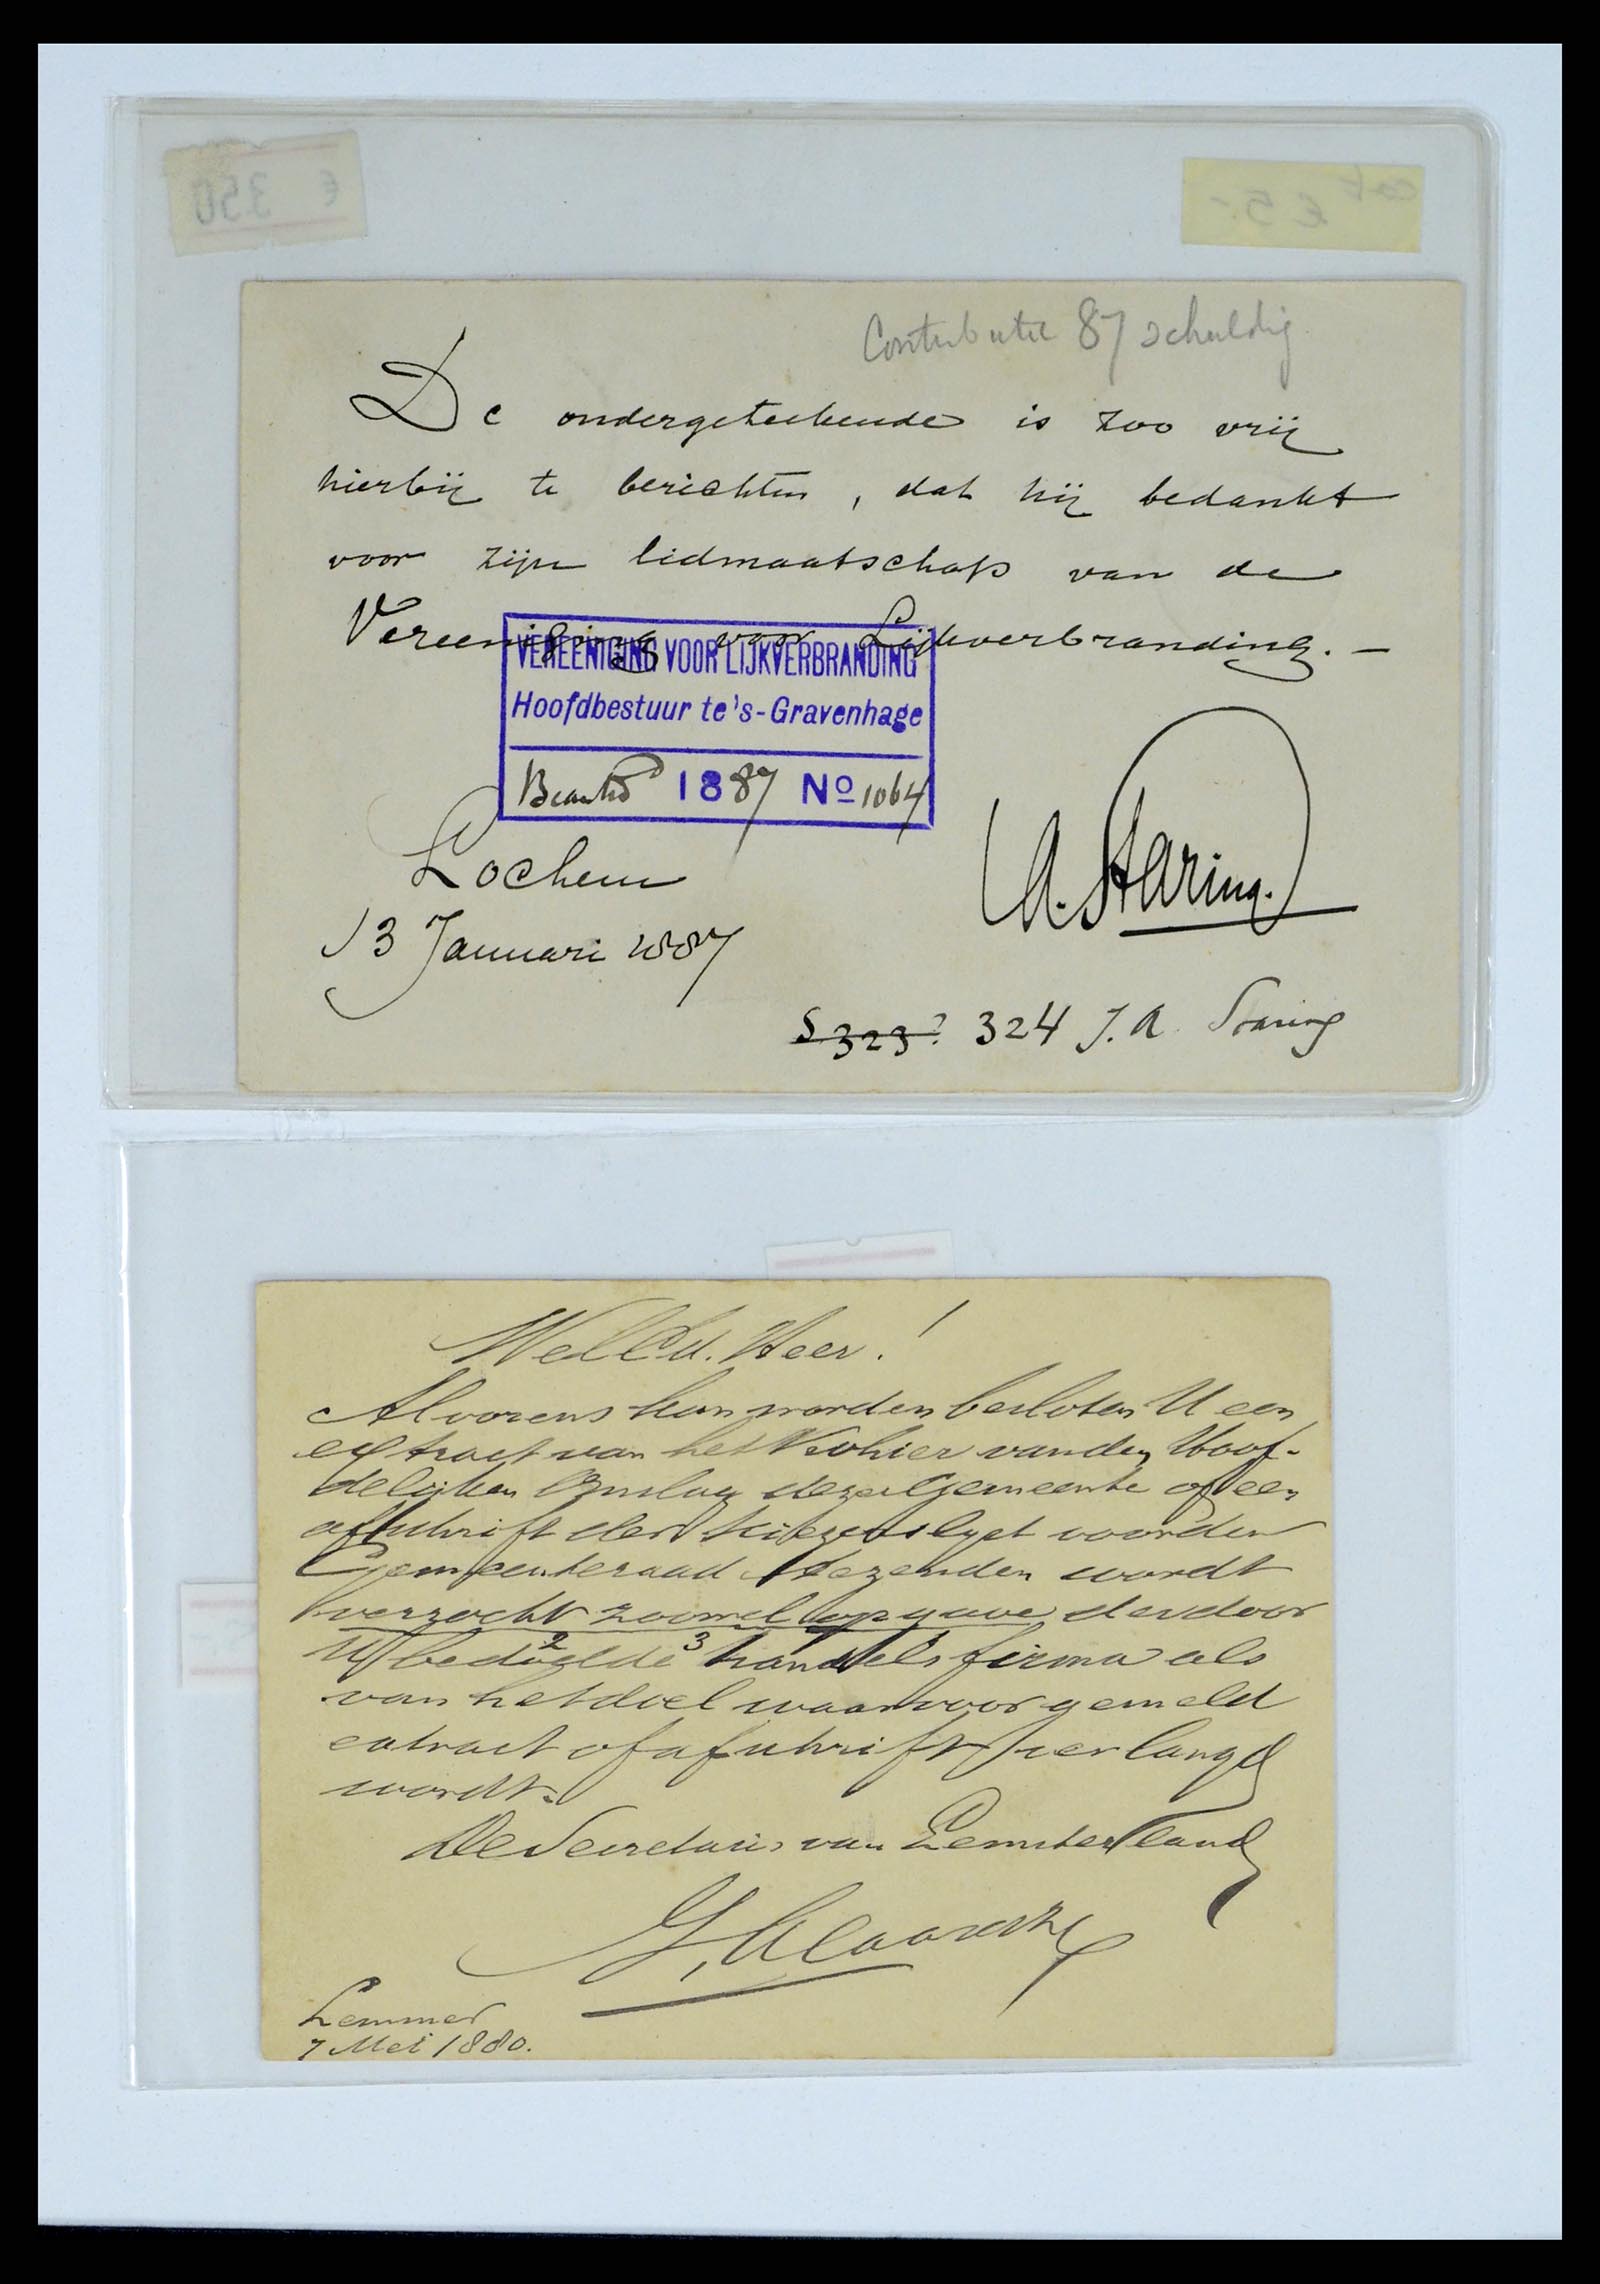 € 350
cat € 5.-
Contributie 87 schuldig
De ondergeteekende is zoo vrij
hierbij te berichten, dat hij bedankt
voor zijn lidmaatschap van de
Vereeniging voor Lijkverbranding. –
VEREENIGING VOOR LIJKVERBRANDING
Hoofdbestuur te 's-Gravenhage
Beantwd 1887 No 1064
Lochem
13 Januari 1887
A. Staring.
S 323? 324 J. A. Staring
WelEd. Heer!
Alvorens kan worden besloten U een
extract van het Kohier van den Hoof-
delijken Omslag dezer Gemeente of een
afschrift der Kiezerslyst voor den
Gemeenteraad toezenden wordt
verzocht zoowel opgave der door
U bedoelde 2 3 handels firma als
van het doel waarvoor gemeld
extract of afschrift verlangd
wordt.
De Secretaris van Lemsterland
Lemmer
7 Mei 1880.